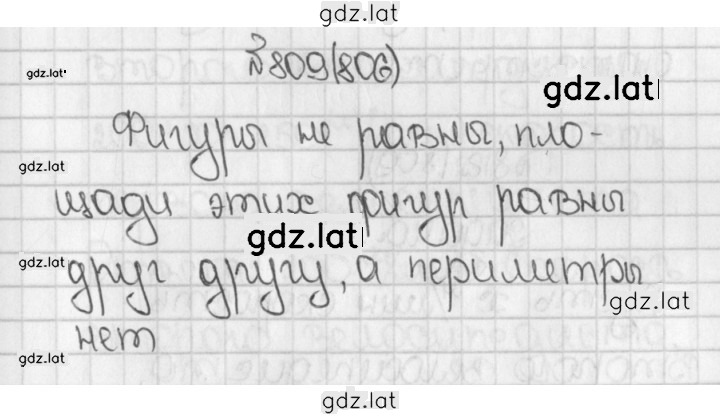 gdz.lat
№809(806)
gdz.lat
gdz.lat
Фигуры не равны, пло-
gdz.lat
щади этих фигур равны
gdz.lat
gdz.lat
друг другу, а периметры
gdz.lat
нет
gdz.lat
gdz.lat